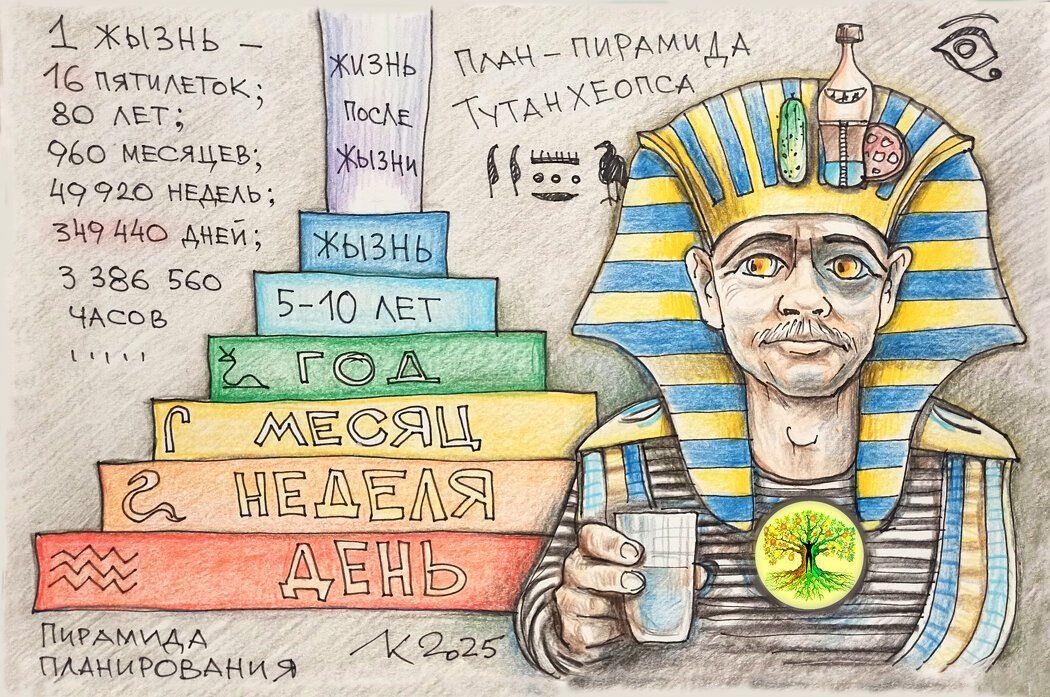 1 ЖЫЗНЬ –
16 ПЯТИЛЕТОК;
80 ЛЕТ;
960 МЕСЯЦЕВ;
49 920 НЕДЕЛЬ;
349 440 ДНЕЙ;
3 386 560
ЧАСОВ
ЖИЗНЬ
ПОСЛЕ
ЖЫЗНИ
ЖЫЗНЬ
5–10 ЛЕТ
ГОД
МЕСЯЦ
НЕДЕЛЯ
ДЕНЬ
ПЛАН – ПИРАМИДА
ТУТАНХЕОПСА
ПИРАМИДА
ПЛАНИРОВАНИЯ
ЛК 2025